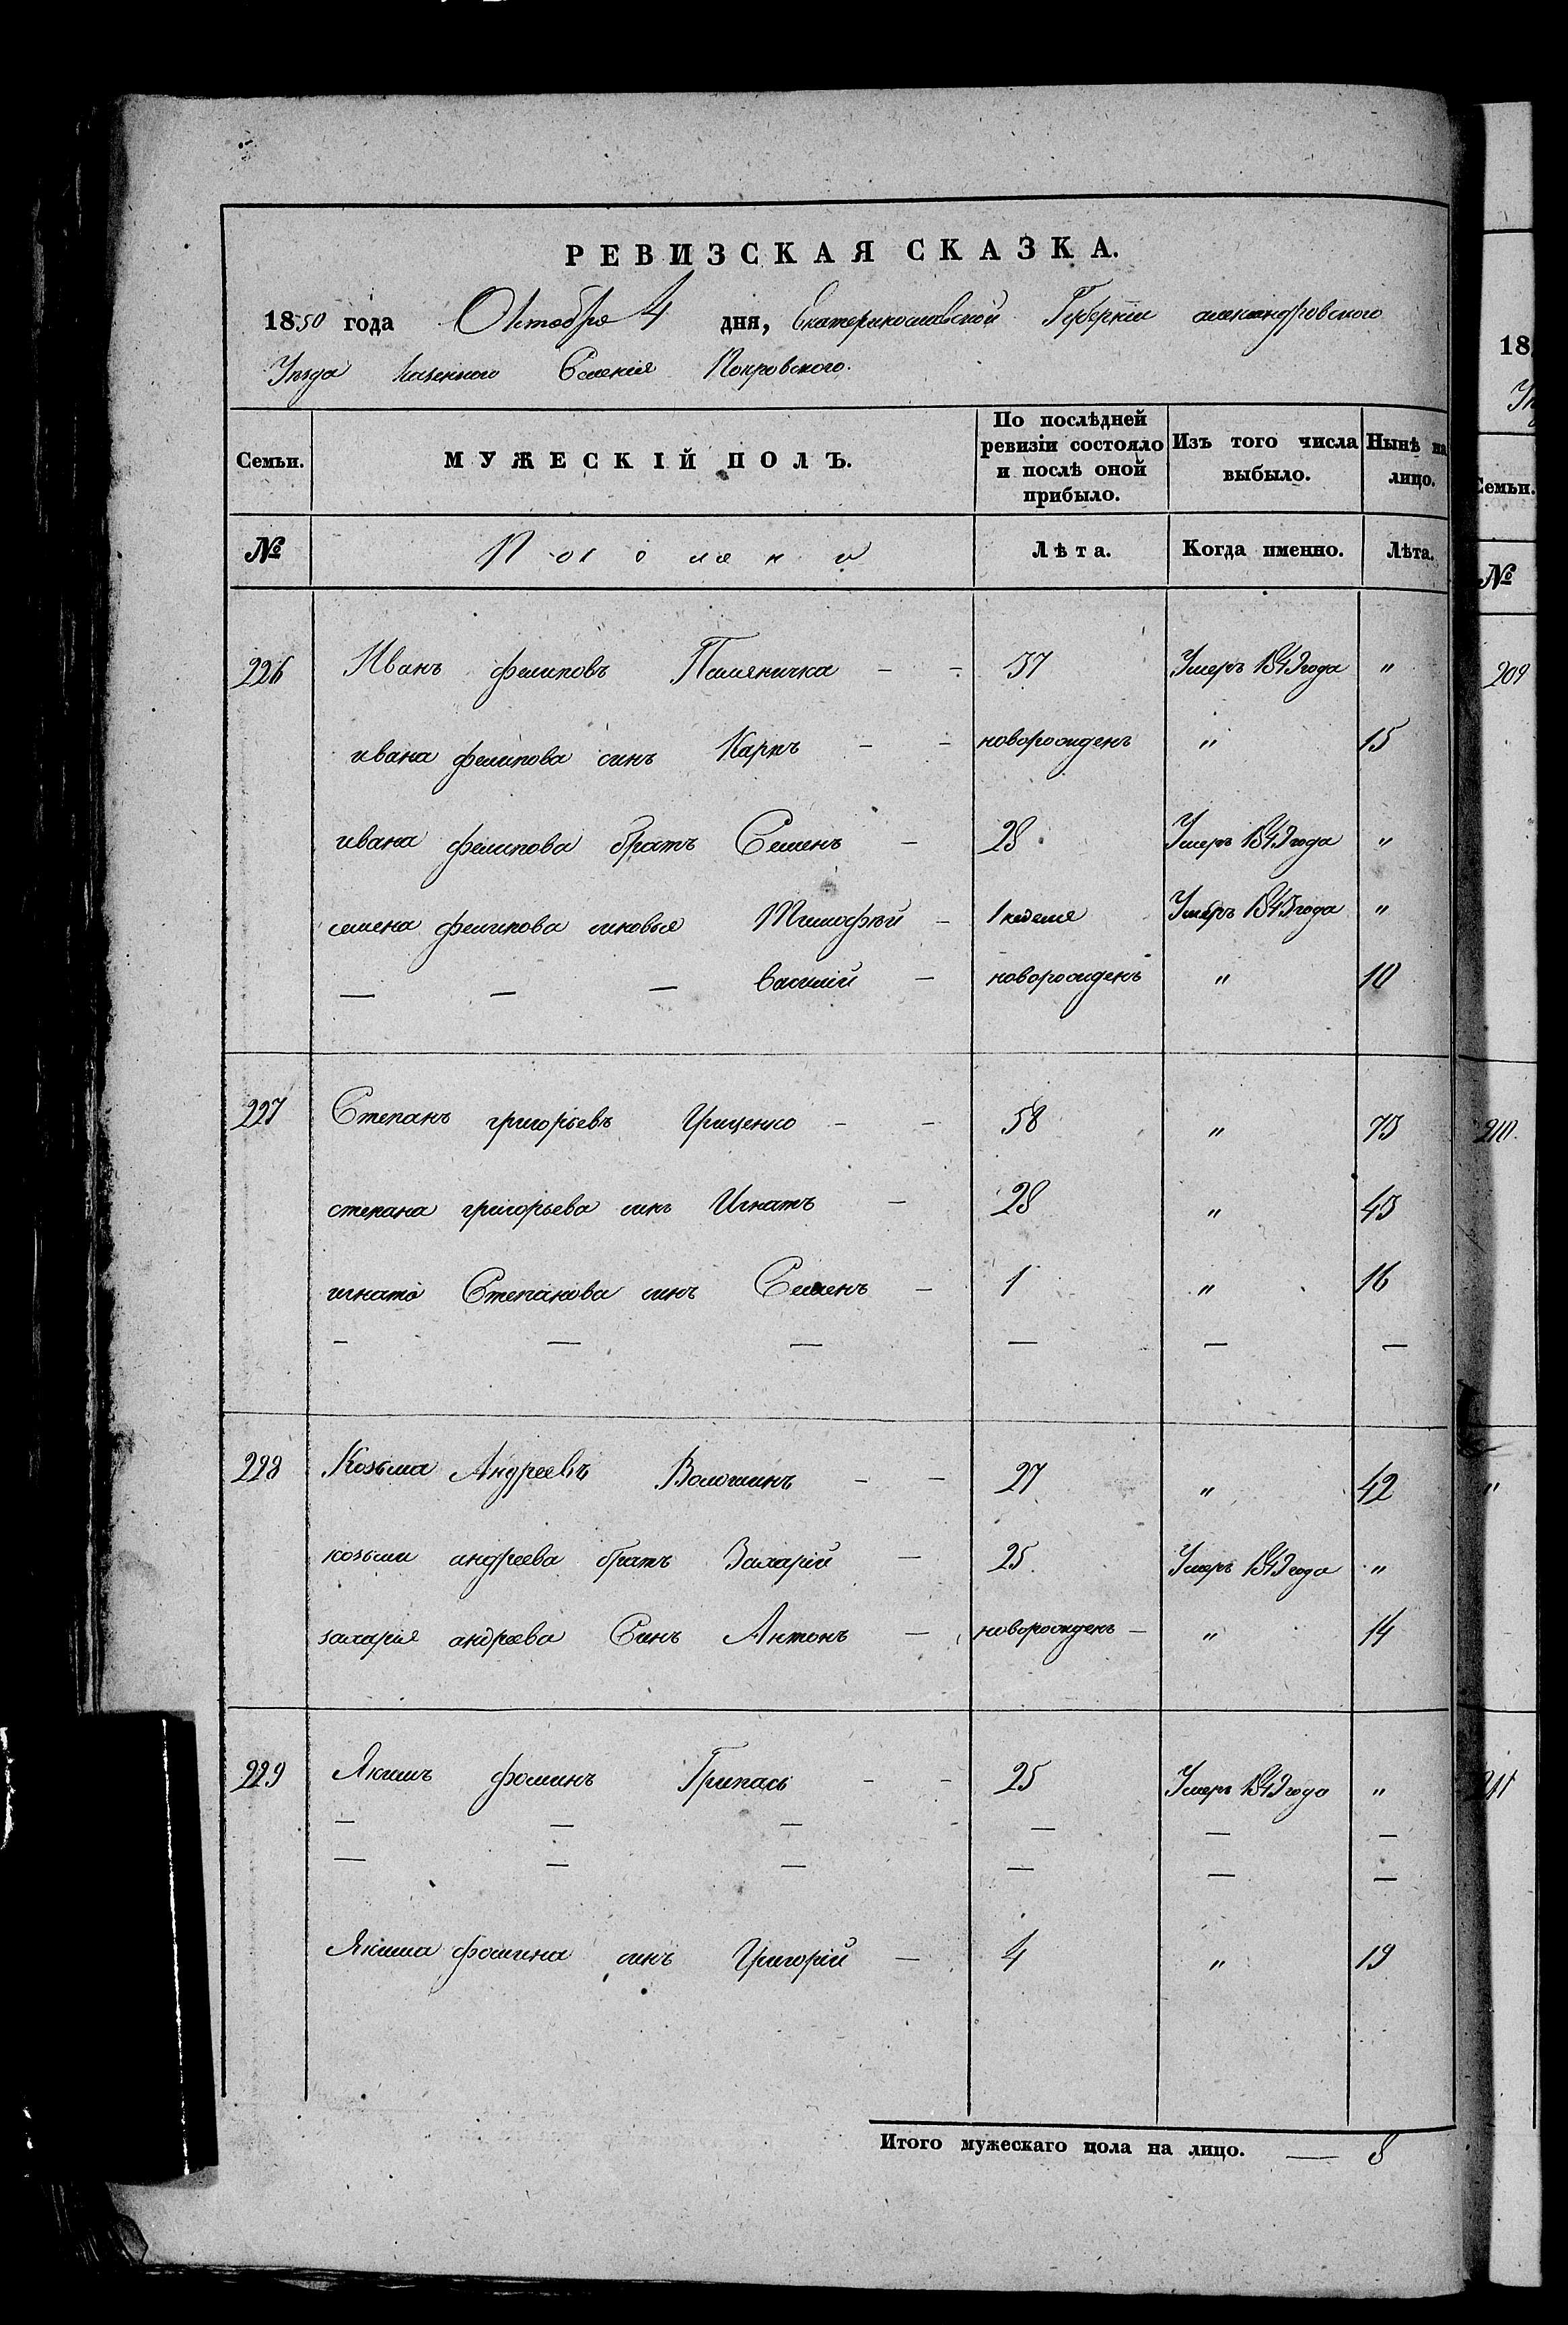 РЕВИЗСКАЯ СКАЗКА.
1850 года Октобра 4 дня, Екатеринославской Губернiи александровского
Уезда казенного Селенiя Покровского.
Семьи. МУЖЕСКIЙ ПОЛЪ. По послѣдней ревизiи состояло и послѣ оной прибыло. Изъ того числа выбыло. Нынѣ на лицо.
№ Лѣта. Когда именно. Лѣта.
226 Иванъ филиповъ Паляничка — — 37 Умеръ 1849 года "
ивана филипова синъ Карпъ — — новорожденъ " 15
ивана филипова братъ Семенъ — 28 Умеръ 1849 года "
семена филипова синовья Тимофѣй — 1 неделя Умеръ 1845 года "
— — — василiй — новорожденъ " 10
227 Степанъ григорьевъ Гриценко — — 58 " 73
степана григорьева синъ Игнатъ — 28 " 43
игната Степанова синъ Семенъ — 1 " 16
— — — — — —
228 Козьма Андреевъ Волошинъ — — 27 " 42
козьми андреева братъ Захарiй — 25 Умеръ 1849 года "
захария андреева Синъ Антонъ — новорожденъ — " 14
229 Якимъ фоминъ Грипась — — 25 Умеръ 1849 года "
— — — — — —
— — — — — —
Якима фомина синъ Григорiй — 4 " 19
Итого мужескаго пола на лицо. — 8
18
Семьи.
№
209
210.
"
211